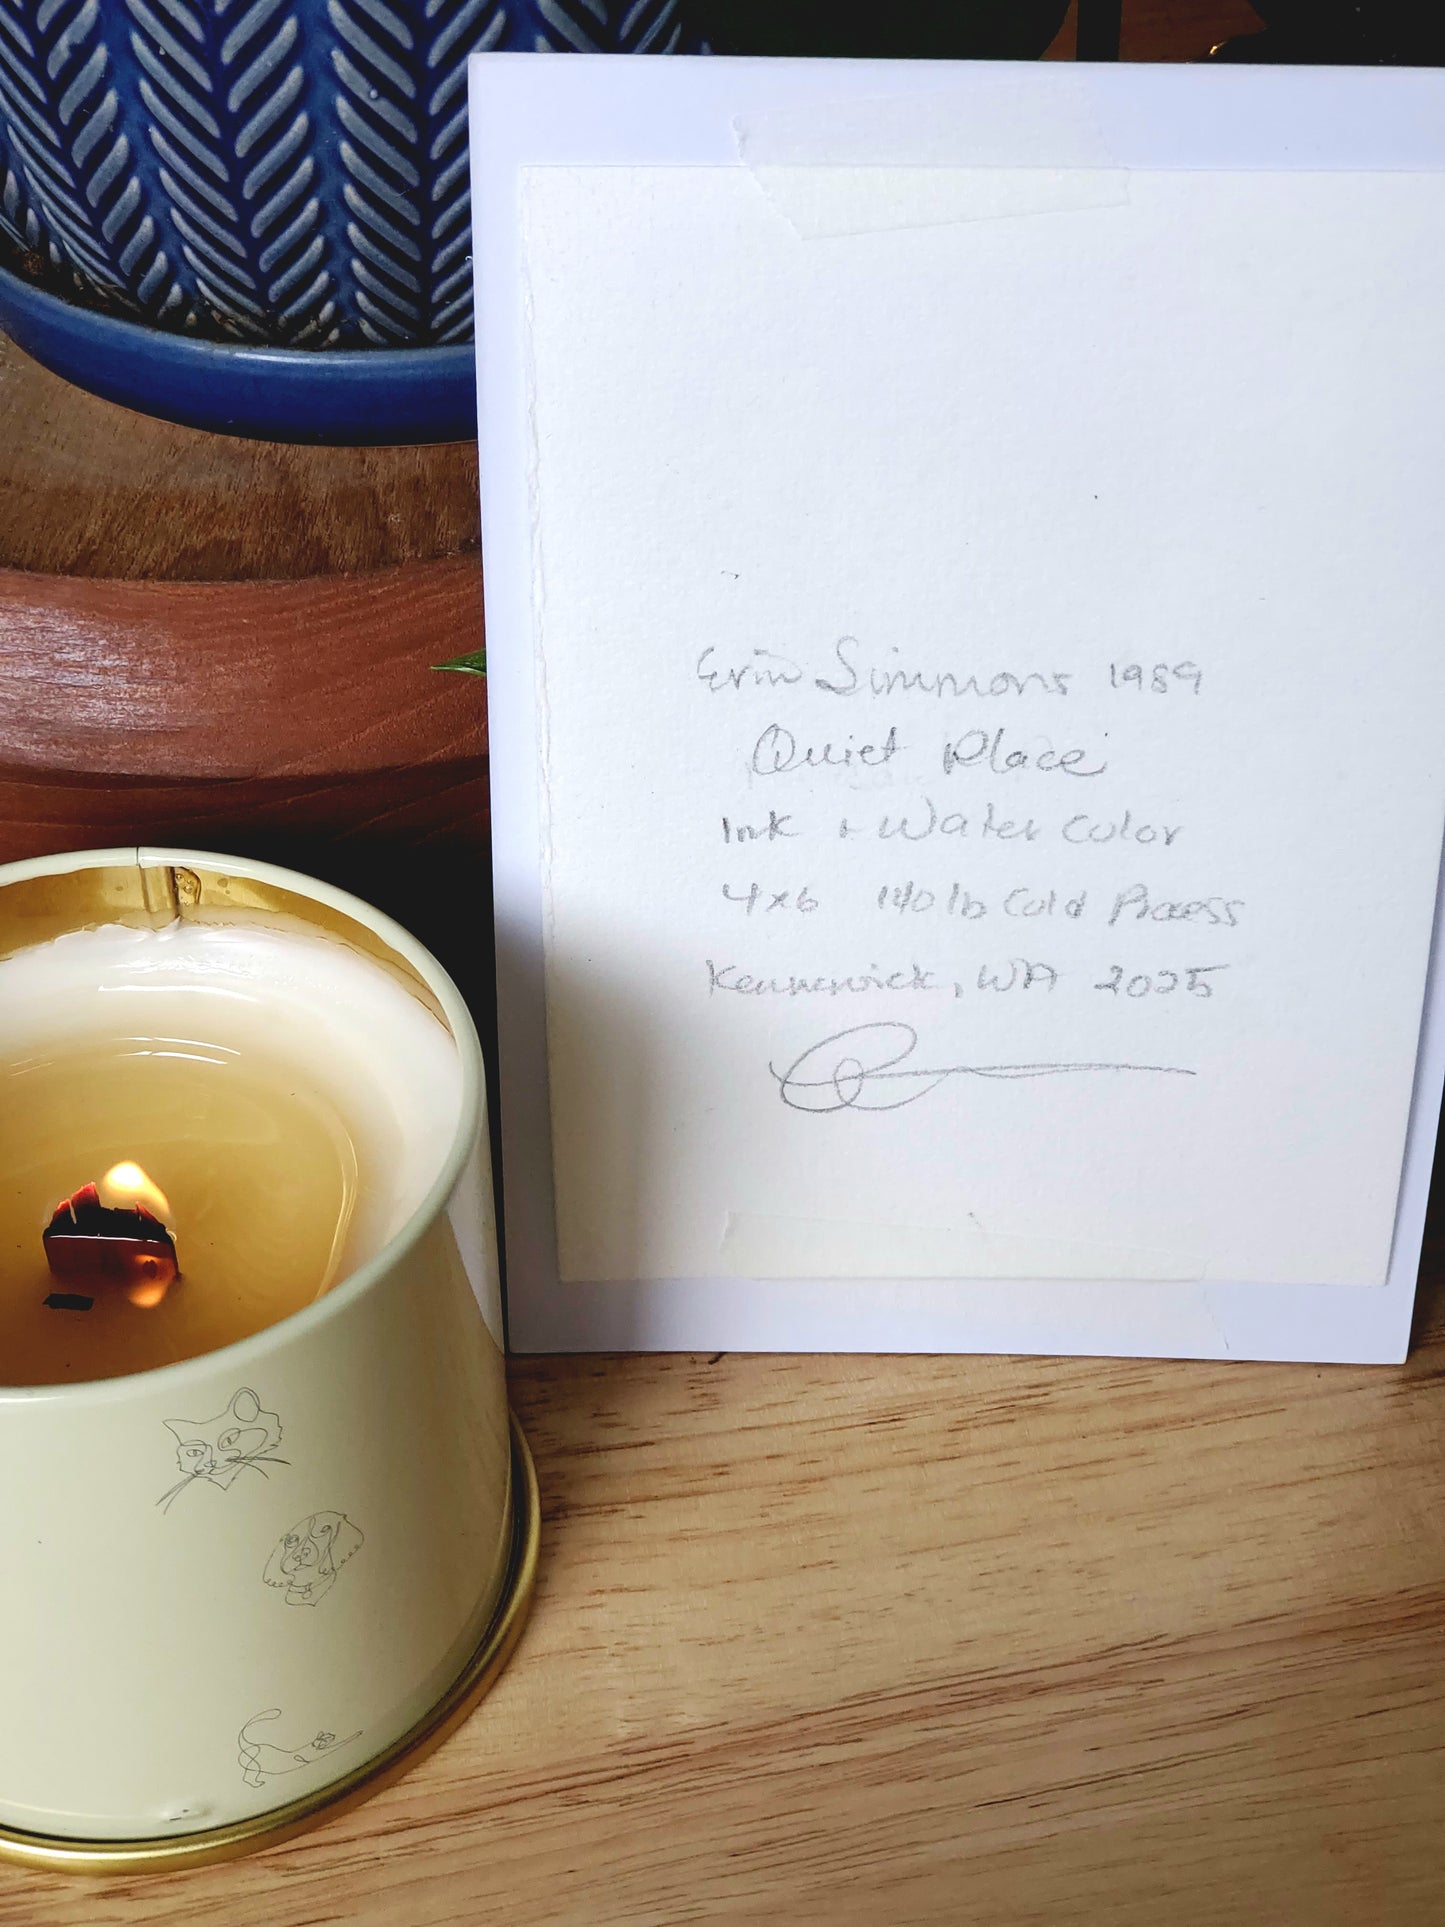 Erin Simmons 1989
Quiet Place
Ink + Water Color
4x6 140 lb Cold Process
Kennewick, WA 2025